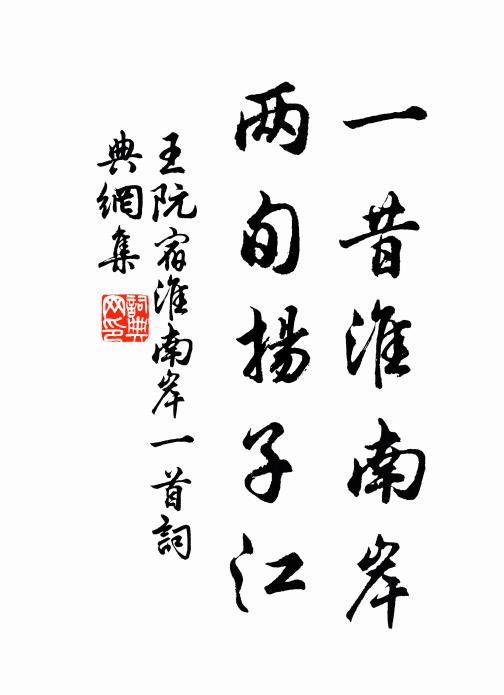 一昔淮南岸
两旬揚子江
王阮宿淮南岸一首詞
典網集
詞典
网印